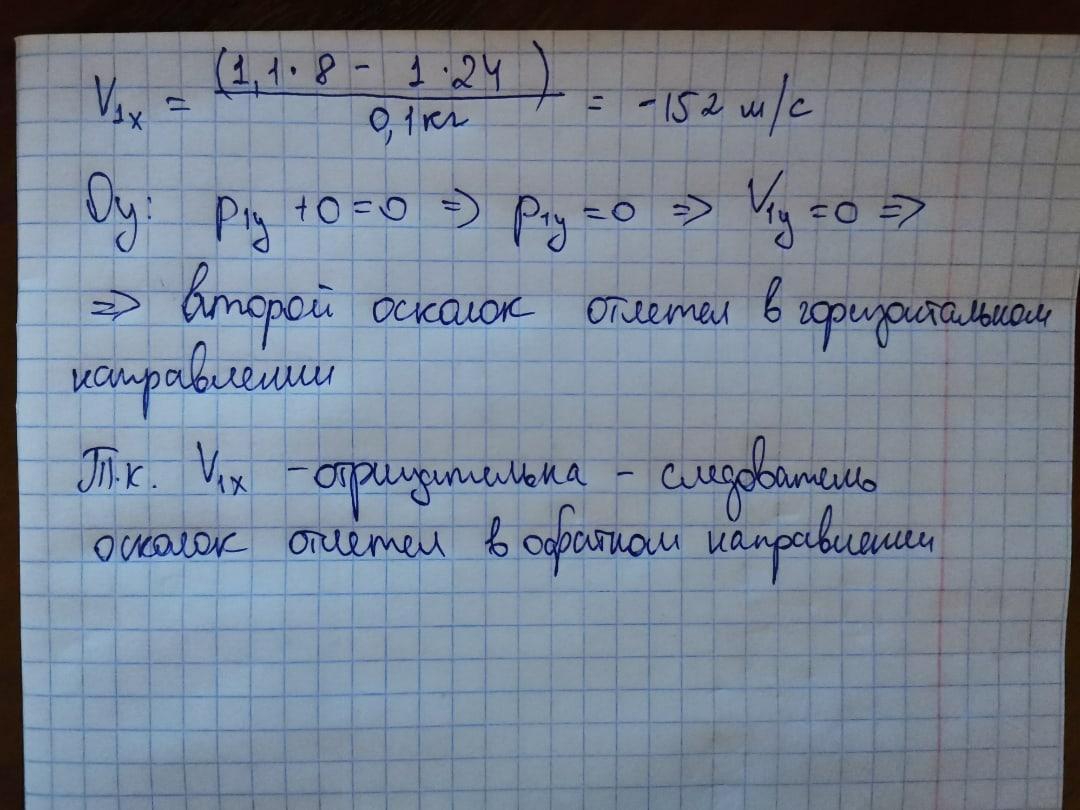 V₁ₓ = (1,1·8 - 1·24) / 0,1кг = -152 м/с
Oy: p₁y + 0 = 0 => p₁y = 0 => V₁y = 0 =>
=> второй осколок отлетел в горизонтальном
направлении
Т.к. V₁ₓ - отрицательна - следователь
осколок отлетел в обратном направлении